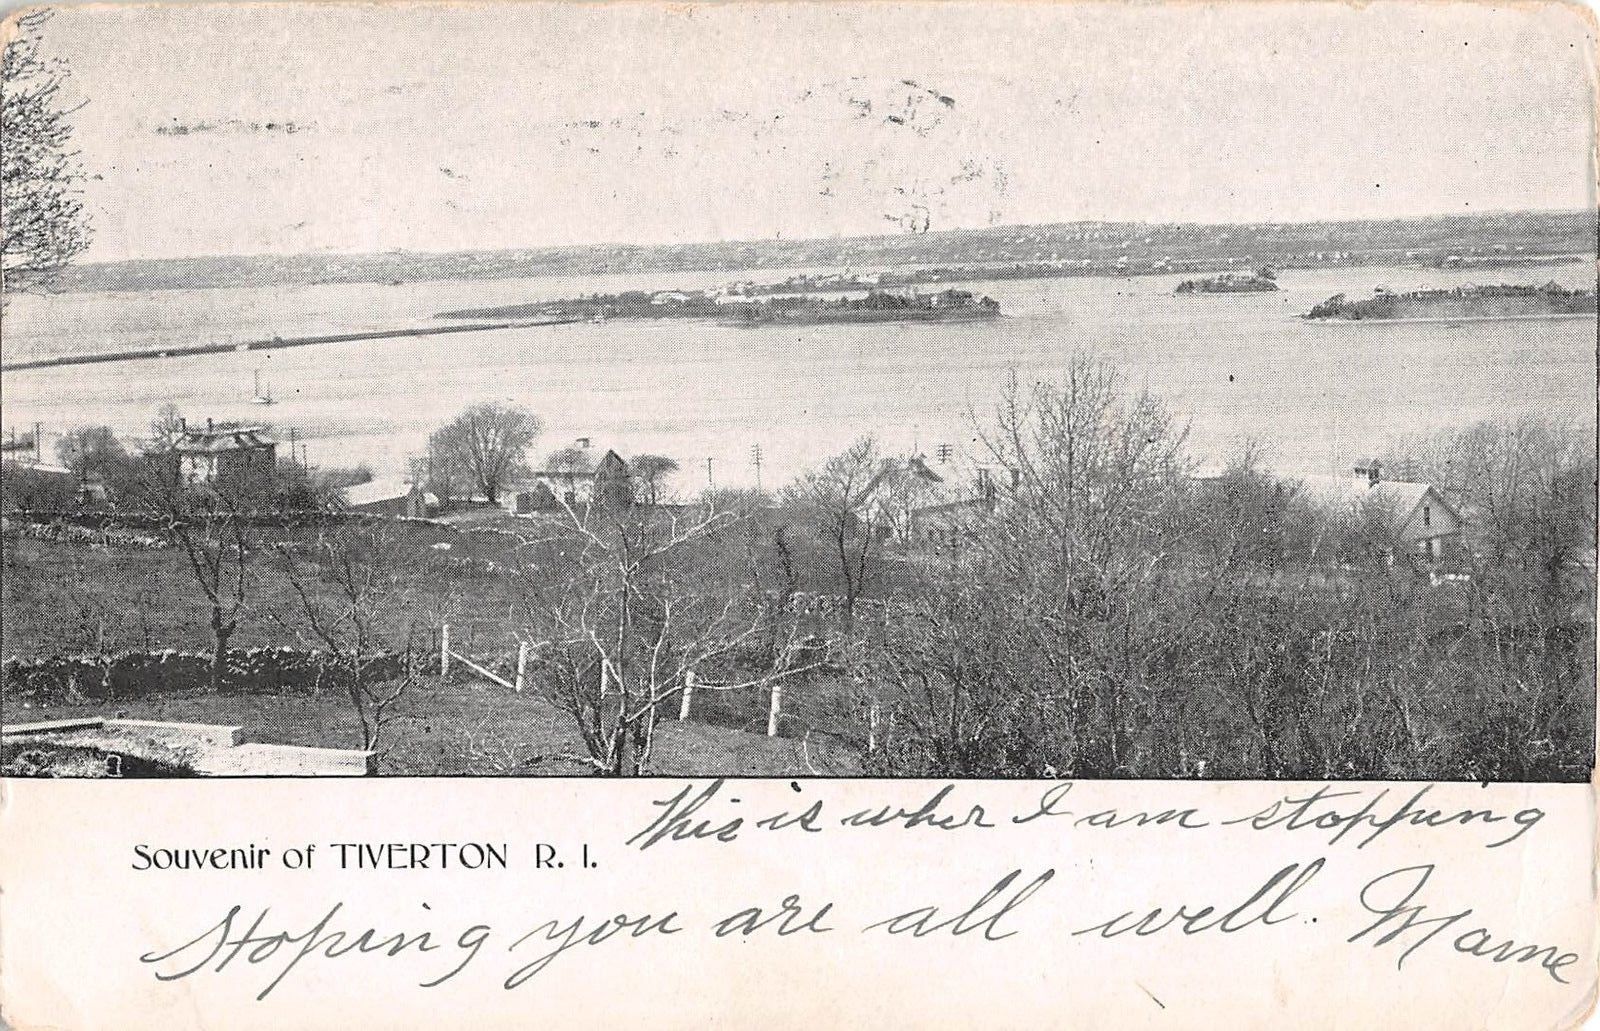 This is wher I am stopping
Souvenir of TIVERTON R. I.
Stoping you are all well. Mame